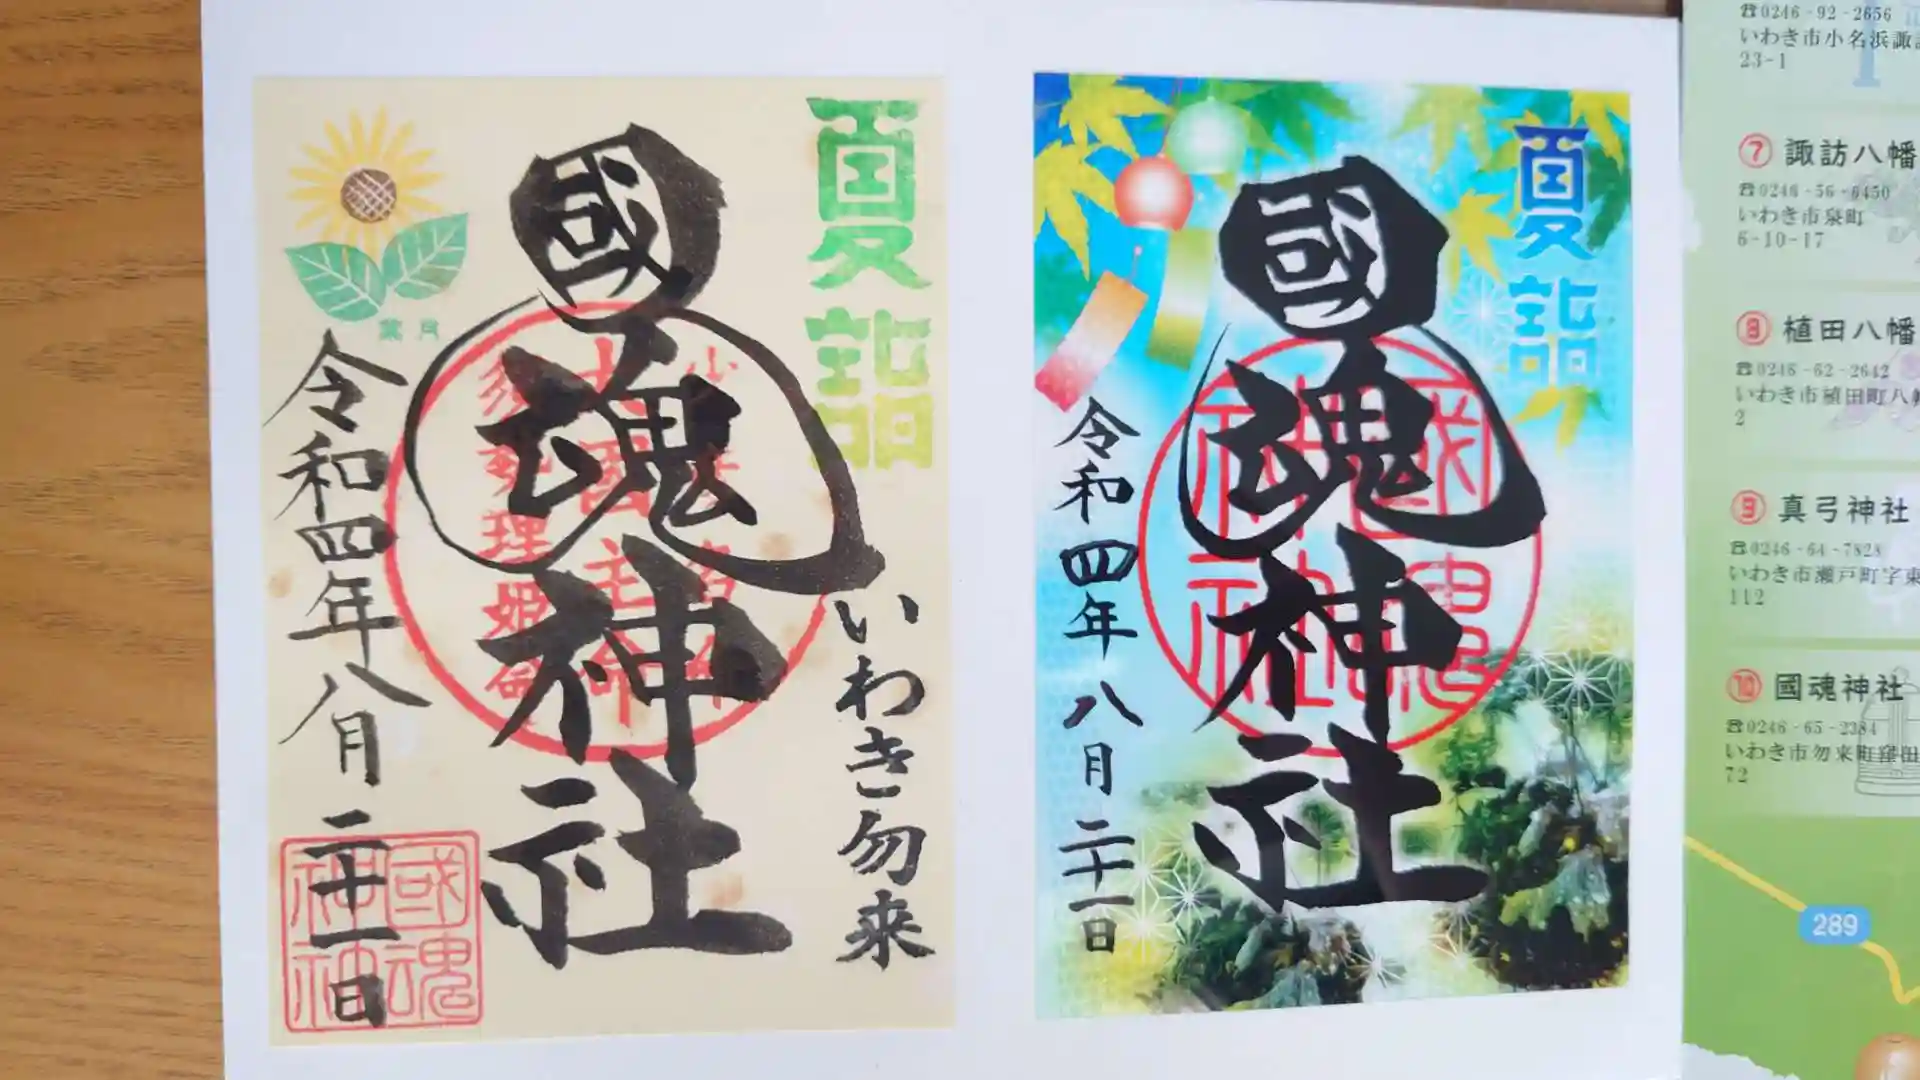 夏詣
國魂神社
いわき勿来
葉月
令和四年八月二十一日
國魂神社
少彦名命
大国主命
須勢理姫命
夏詣
國魂神社
令和四年八月二十一日
國魂神社
☎0246-92-2656
いわき市小名浜諏訪
23-1
⑦ 諏訪八幡
☎0246-56-6450
いわき市泉町
6-10-17
⑧ 植田八幡
☎0246-62-2642
いわき市植田町八幡
2
⑨ 真弓神社
☎0246-64-7828
いわき市瀬戸町字東
112
⑩ 國魂神社
☎0246-65-2384
いわき市勿来町窪田
72
289